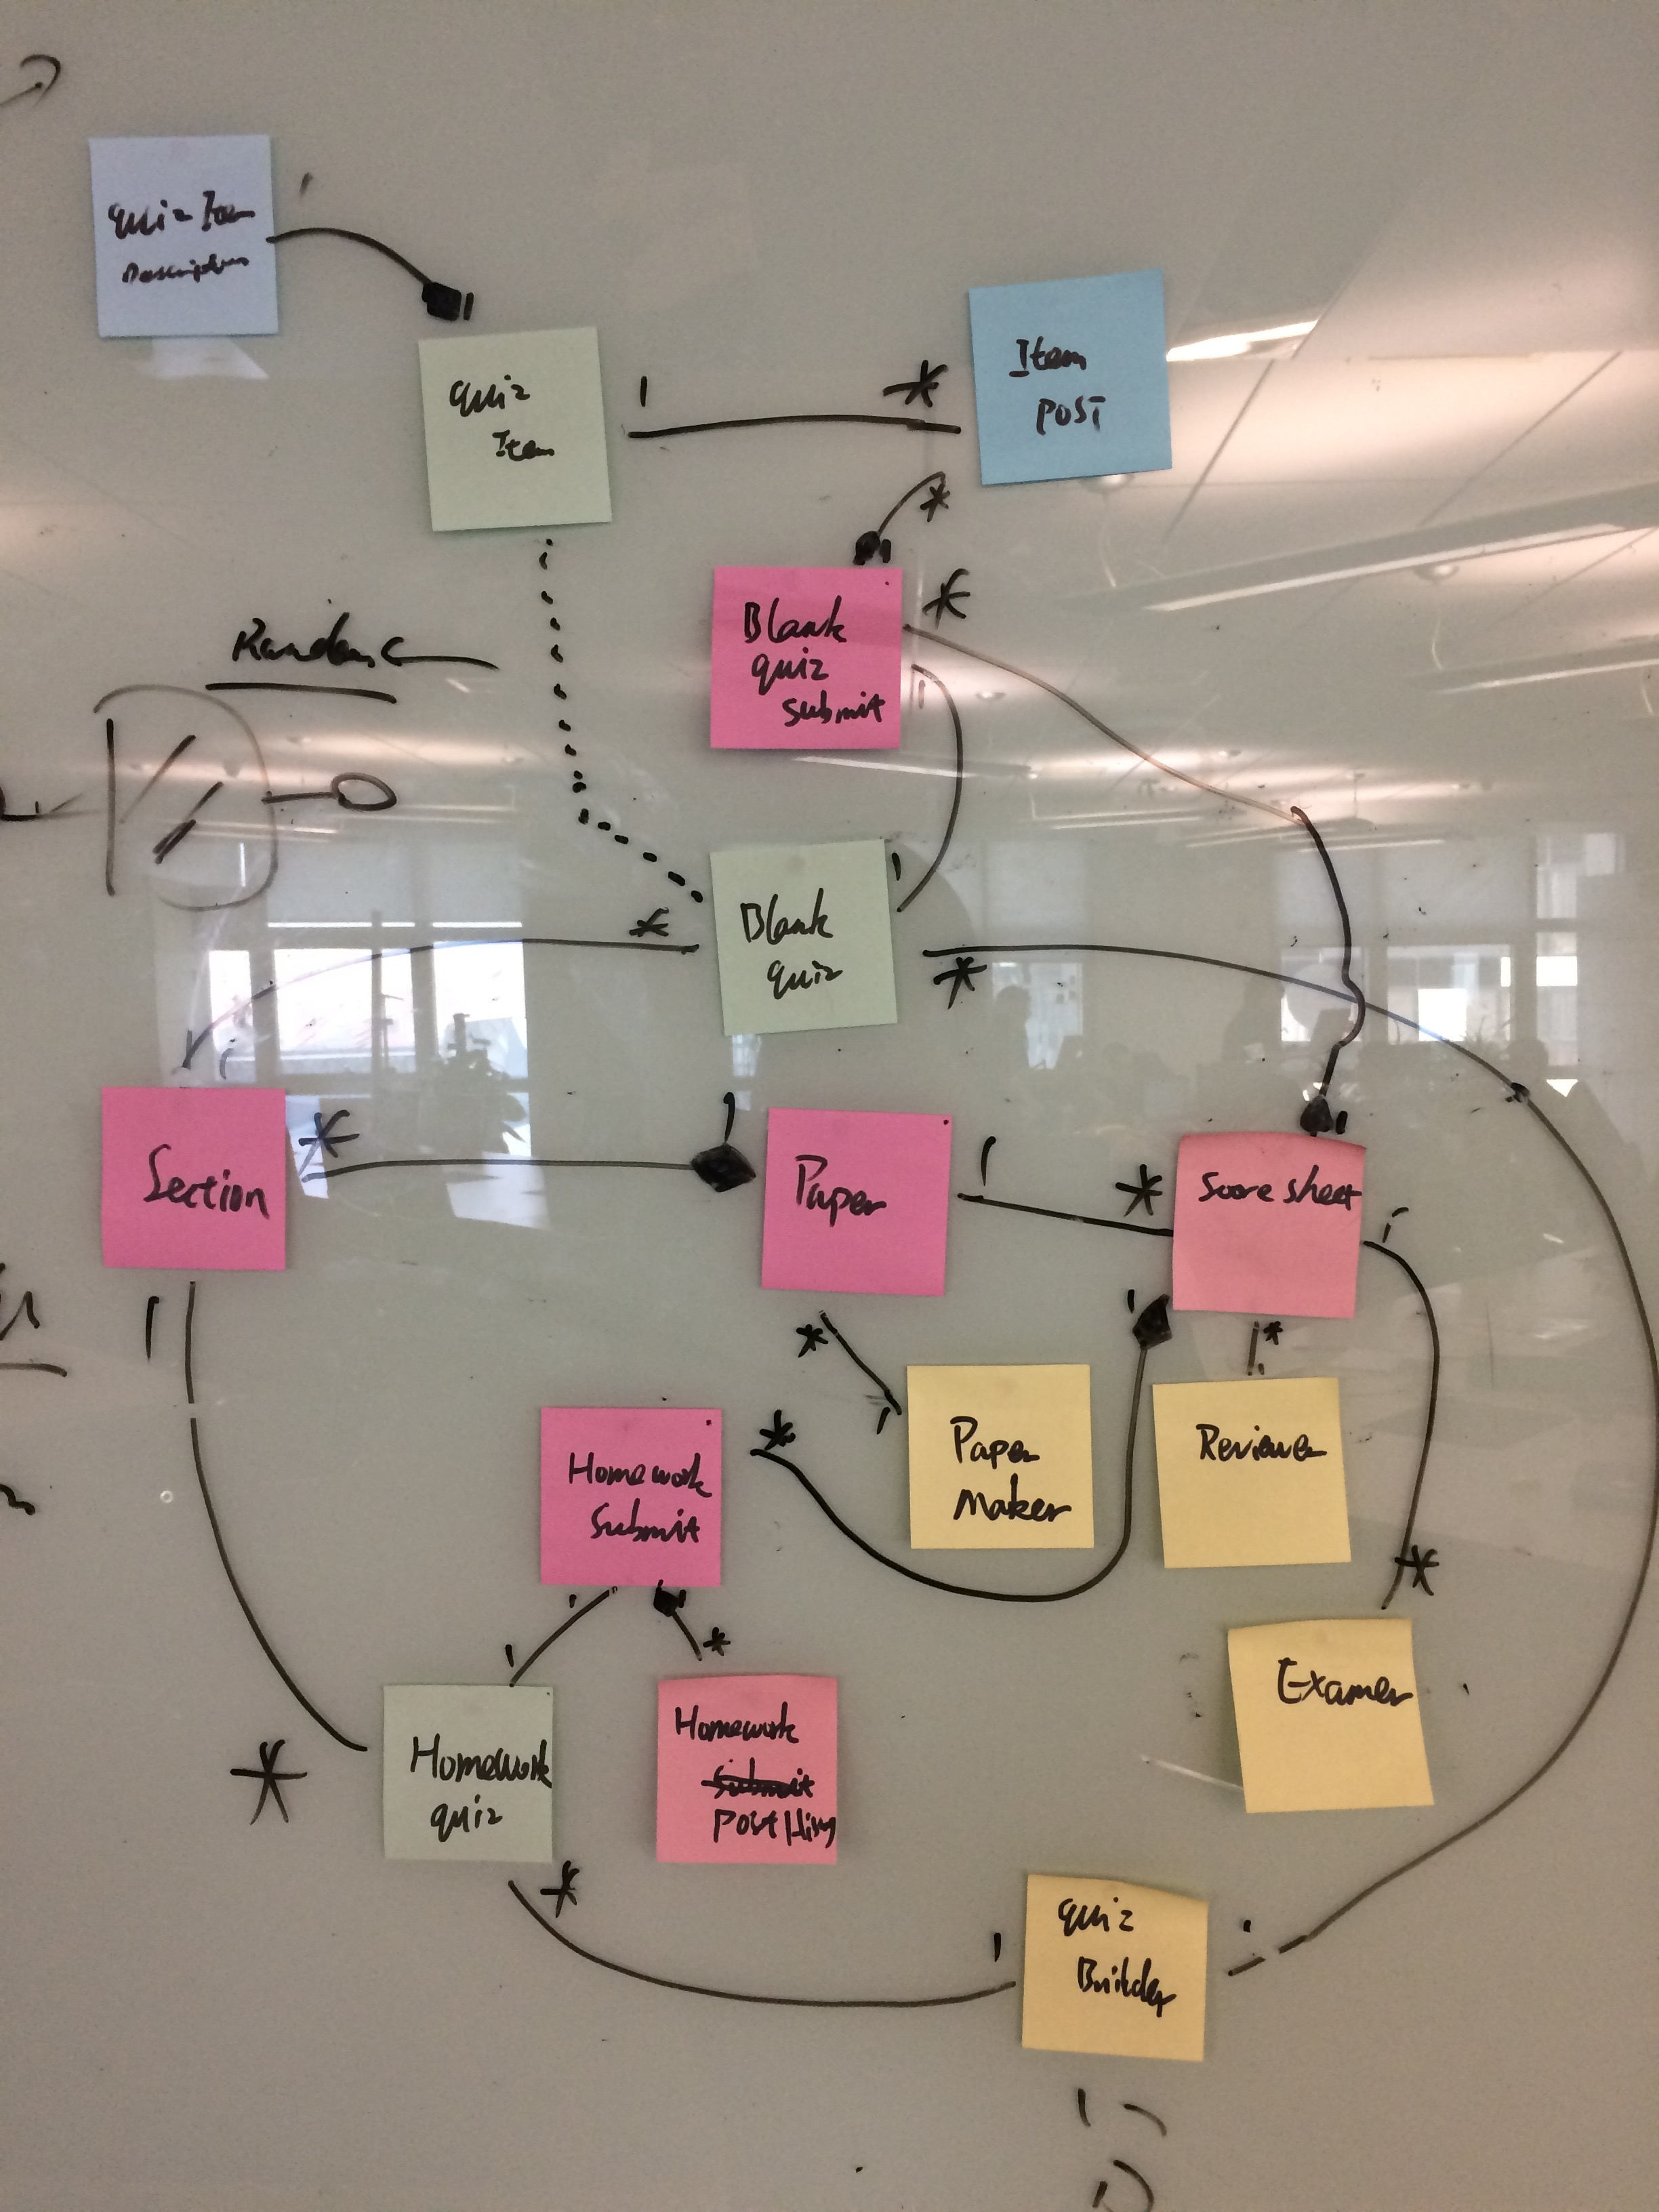 Quiz Item
Description
1
1
Quiz
Item
1
*
Item
POST
*
1
Random
Blank
quiz
submit
*
1
1
Blank
quiz
*
*
1
Section
*
1
Paper
1
*
Score sheet
1
1
1
*
1
1
*
1
Paper
Maker
Reviewer
*
Homework
Submit
*
1
1
1
*
Examer
*
Homework
quiz
*
Homework
Submit
Post Hisy
*
1
quiz
Builder
1